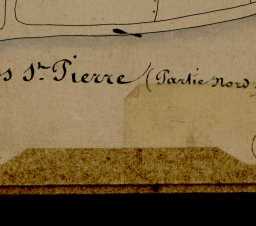 s St. Pierre (Partie Nord